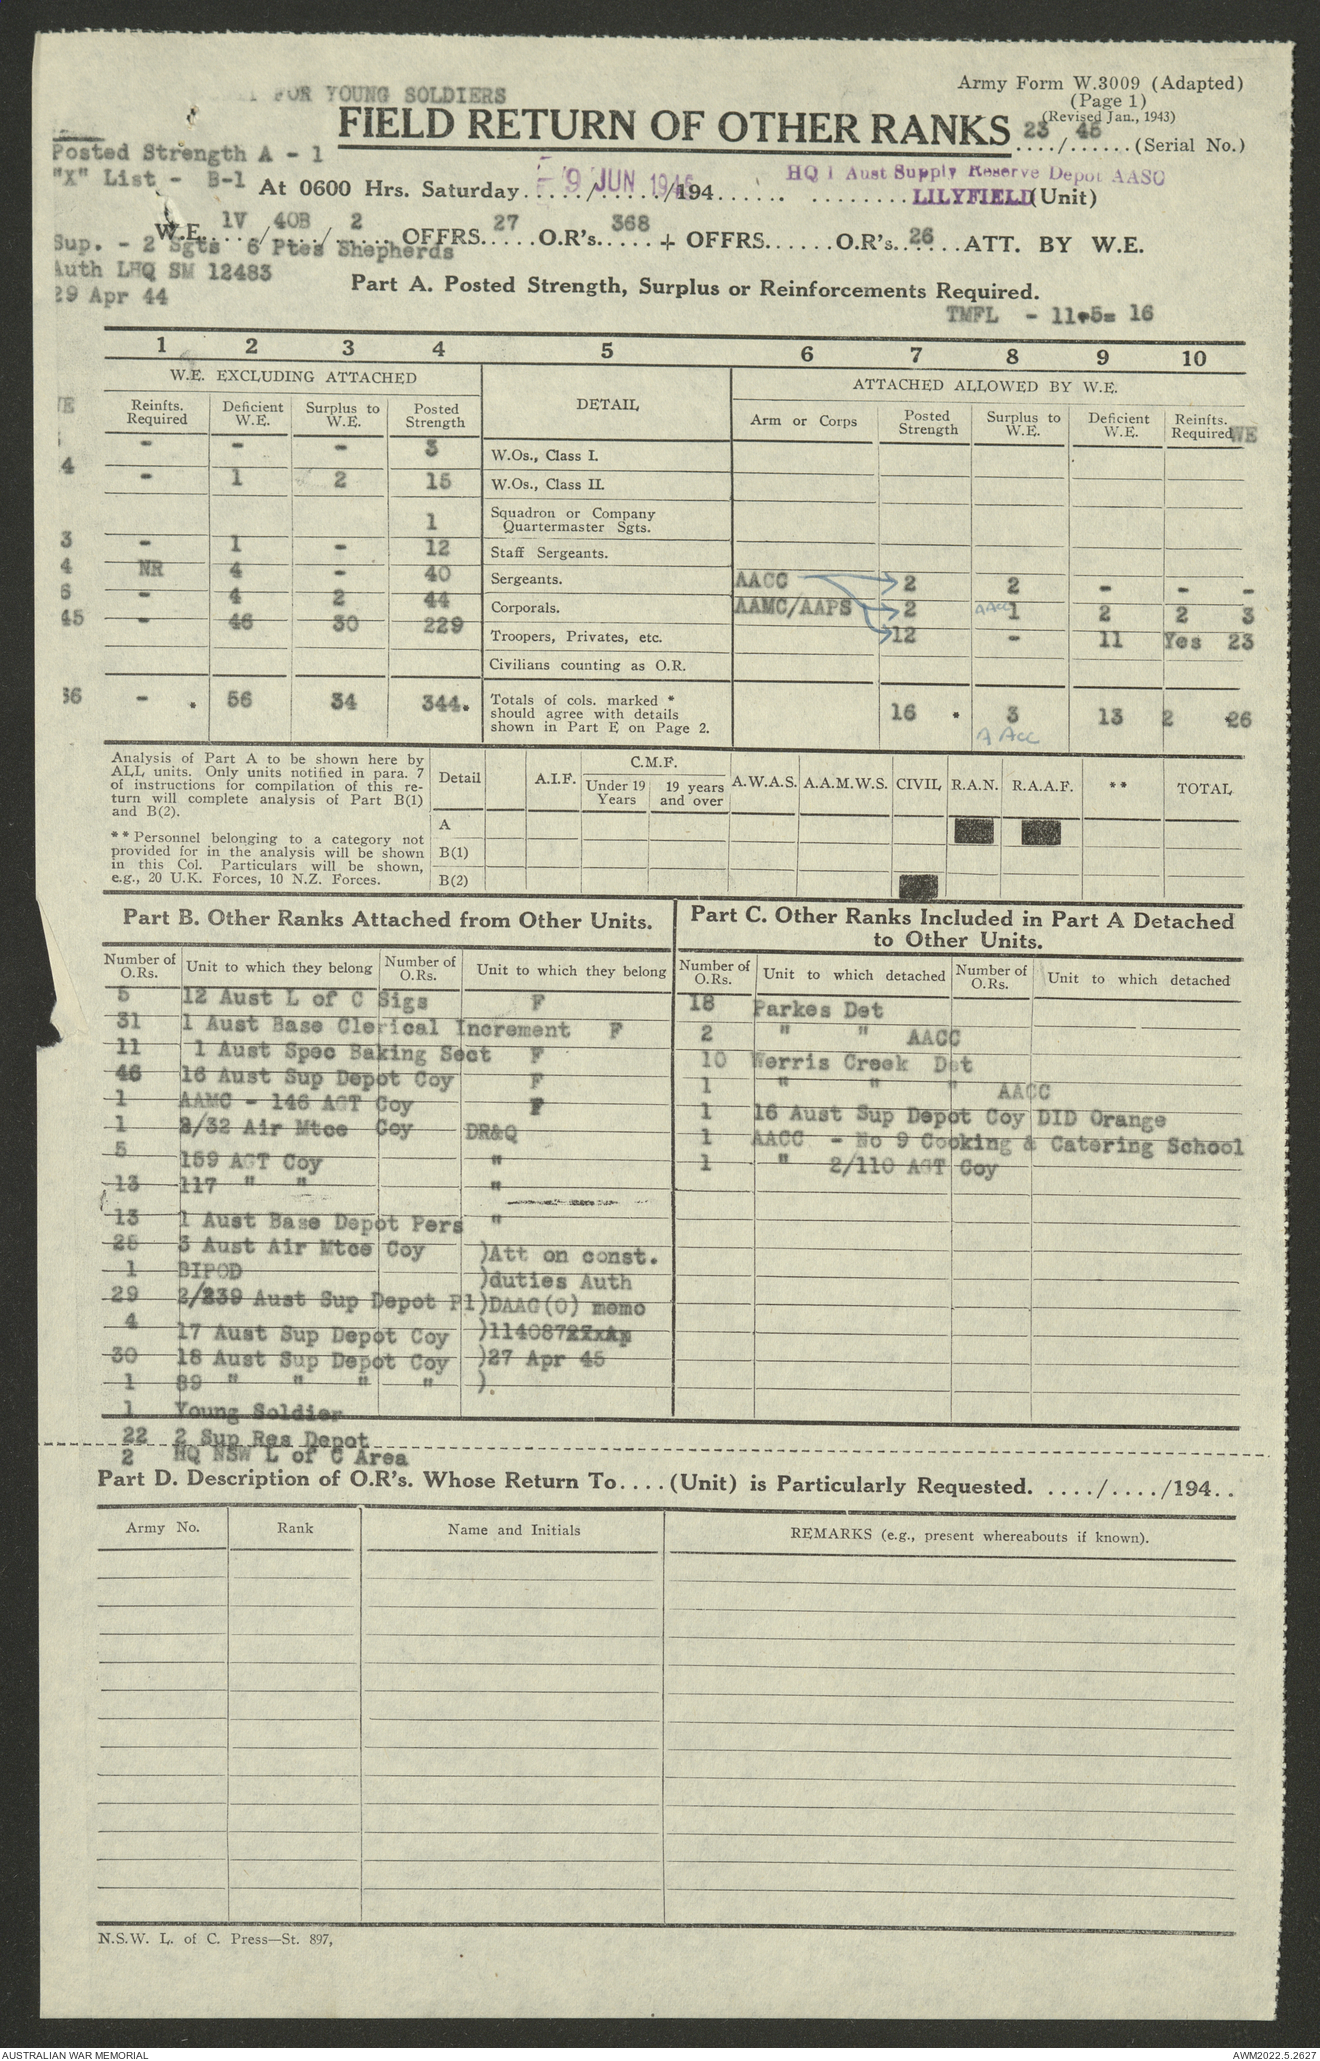 Army Form W.3009 (Adapted)
(Page 1)
(Revised Jan., 1943)
FOR YOUNG SOLDIERS
FIELD RETURN OF OTHER RANKS 23/45 (Serial No.)
Posted Strength A - 1
"X" List - B-1
At 0600 Hrs. Saturday 9 JUN 1945 /194...... HQ 1 Aust Supply Reserve Depot AASC
LILYFIELD (Unit)
W.E. 1V / 40B / 2 OFFRS. 27 O.R's. 368 + OFFRS...... O.R's. 26 ATT. BY W.E.
Sup. - 2 Sgts 6 Ptes Shepherds
Auth LHQ SM 12483
29 Apr 44
Part A. Posted Strength, Surplus or Reinforcements Required.
TMFL - 11.5= 16
1 2 3 4 5 6 7 8 9 10
W.E. EXCLUDING ATTACHED DETAIL ATTACHED ALLOWED BY W.E.
Reinfts. Required Deficient W.E. Surplus to W.E. Posted Strength Arm or Corps Posted Strength Surplus to W.E. Deficient W.E. Reinfts. Required WE
- - - 3 W.Os., Class I.
4 - 1 2 15 W.Os., Class II.
1 Squadron or Company Quartermaster Sgts.
3 - 1 - 12 Staff Sergeants.
4 NR 4 - 40 Sergeants. AACC 2 2 - - -
6 - 4 2 44 Corporals. AAMC/AAPS 2 AACC 1 2 2 3
45 - 46 30 229 Troopers, Privates, etc. 12 - 11 Yes 23
Civilians counting as O.R.
36 - . 56 34 344. Totals of cols. marked * should agree with details shown in Part E on Page 2. 16 . 3 13 2 26
AACC
Analysis of Part A to be shown here by
ALL units. Only units notified in para. 7
of instructions for compilation of this re-
turn will complete analysis of Part B(1)
and B(2).
** Personnel belonging to a category not
provided for in the analysis will be shown
in this Col. Particulars will be shown,
e.g., 20 U.K. Forces, 10 N.Z. Forces.
Detail A.I.F. C.M.F. Under 19 Years 19 years and over A.W.A.S. A.A.M.W.S. CIVIL R.A.N. R.A.A.F. ** TOTAL
A
B(1)
B(2)
Part B. Other Ranks Attached from Other Units.
Number of O.Rs. Unit to which they belong Number of O.Rs. Unit to which they belong
5 12 Aust L of C Sigs F
31 1 Aust Base Clerical Increment F
11 1 Aust Spec Baking Sect F
46 16 Aust Sup Depot Coy F
1 AAMC - 146 AGT Coy F
1 2/32 Air Mtce Coy DR&Q
5 159 AGT Coy "
13 117 " " "
13 1 Aust Base Depot Pers "
25 3 Aust Air Mtce Coy )Att on const.
1 BIPOD )duties Auth
29 2/239 Aust Sup Depot Pl)DAAG(O) memo
4 17 Aust Sup Depot Coy )1140872
30 18 Aust Sup Depot Coy )27 Apr 45
1 89 " " " " ).
1 Young Soldier
22 2 Sup Res Depot
2 HQ NSW L of C Area
Part C. Other Ranks Included in Part A Detached
to Other Units.
Number of O.Rs. Unit to which detached Number of O.Rs. Unit to which detached
18 Parkes Det
2 " " AACC
10 Werris Creek Det
1 " " " AACC
1 16 Aust Sup Depot Coy DID Orange
1 AACC - No 9 Cooking & Catering School
1 " 2/110 AGT Coy
Part D. Description of O.R's. Whose Return To....(Unit) is Particularly Requested. ..../..../194..
Army No. Rank Name and Initials REMARKS (e.g., present whereabouts if known).
N.S.W. L. of C. Press—St. 897,
AUSTRALIAN WAR MEMORIAL AWM2022.5.2627